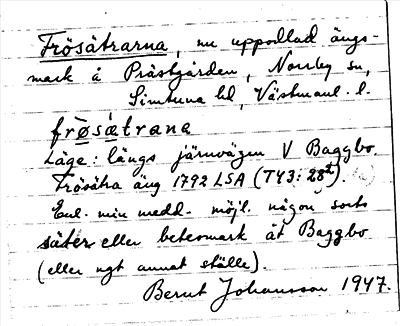 Frösätrarna, nu uppodlad ängs-
mark å Prästgården, Norrby sn,
Simtuna hd, Västmanl. l.
frøsætrana
Läge: längs järnvägen V Baggbo.
Frösätra äng 1792 LSA (T43: 28²).
Enl. min medd. möjl. någon sorts
säter eller betesmark åt Baggbo
(eller ngt annat ställe).
Bernt Johansson 1947.